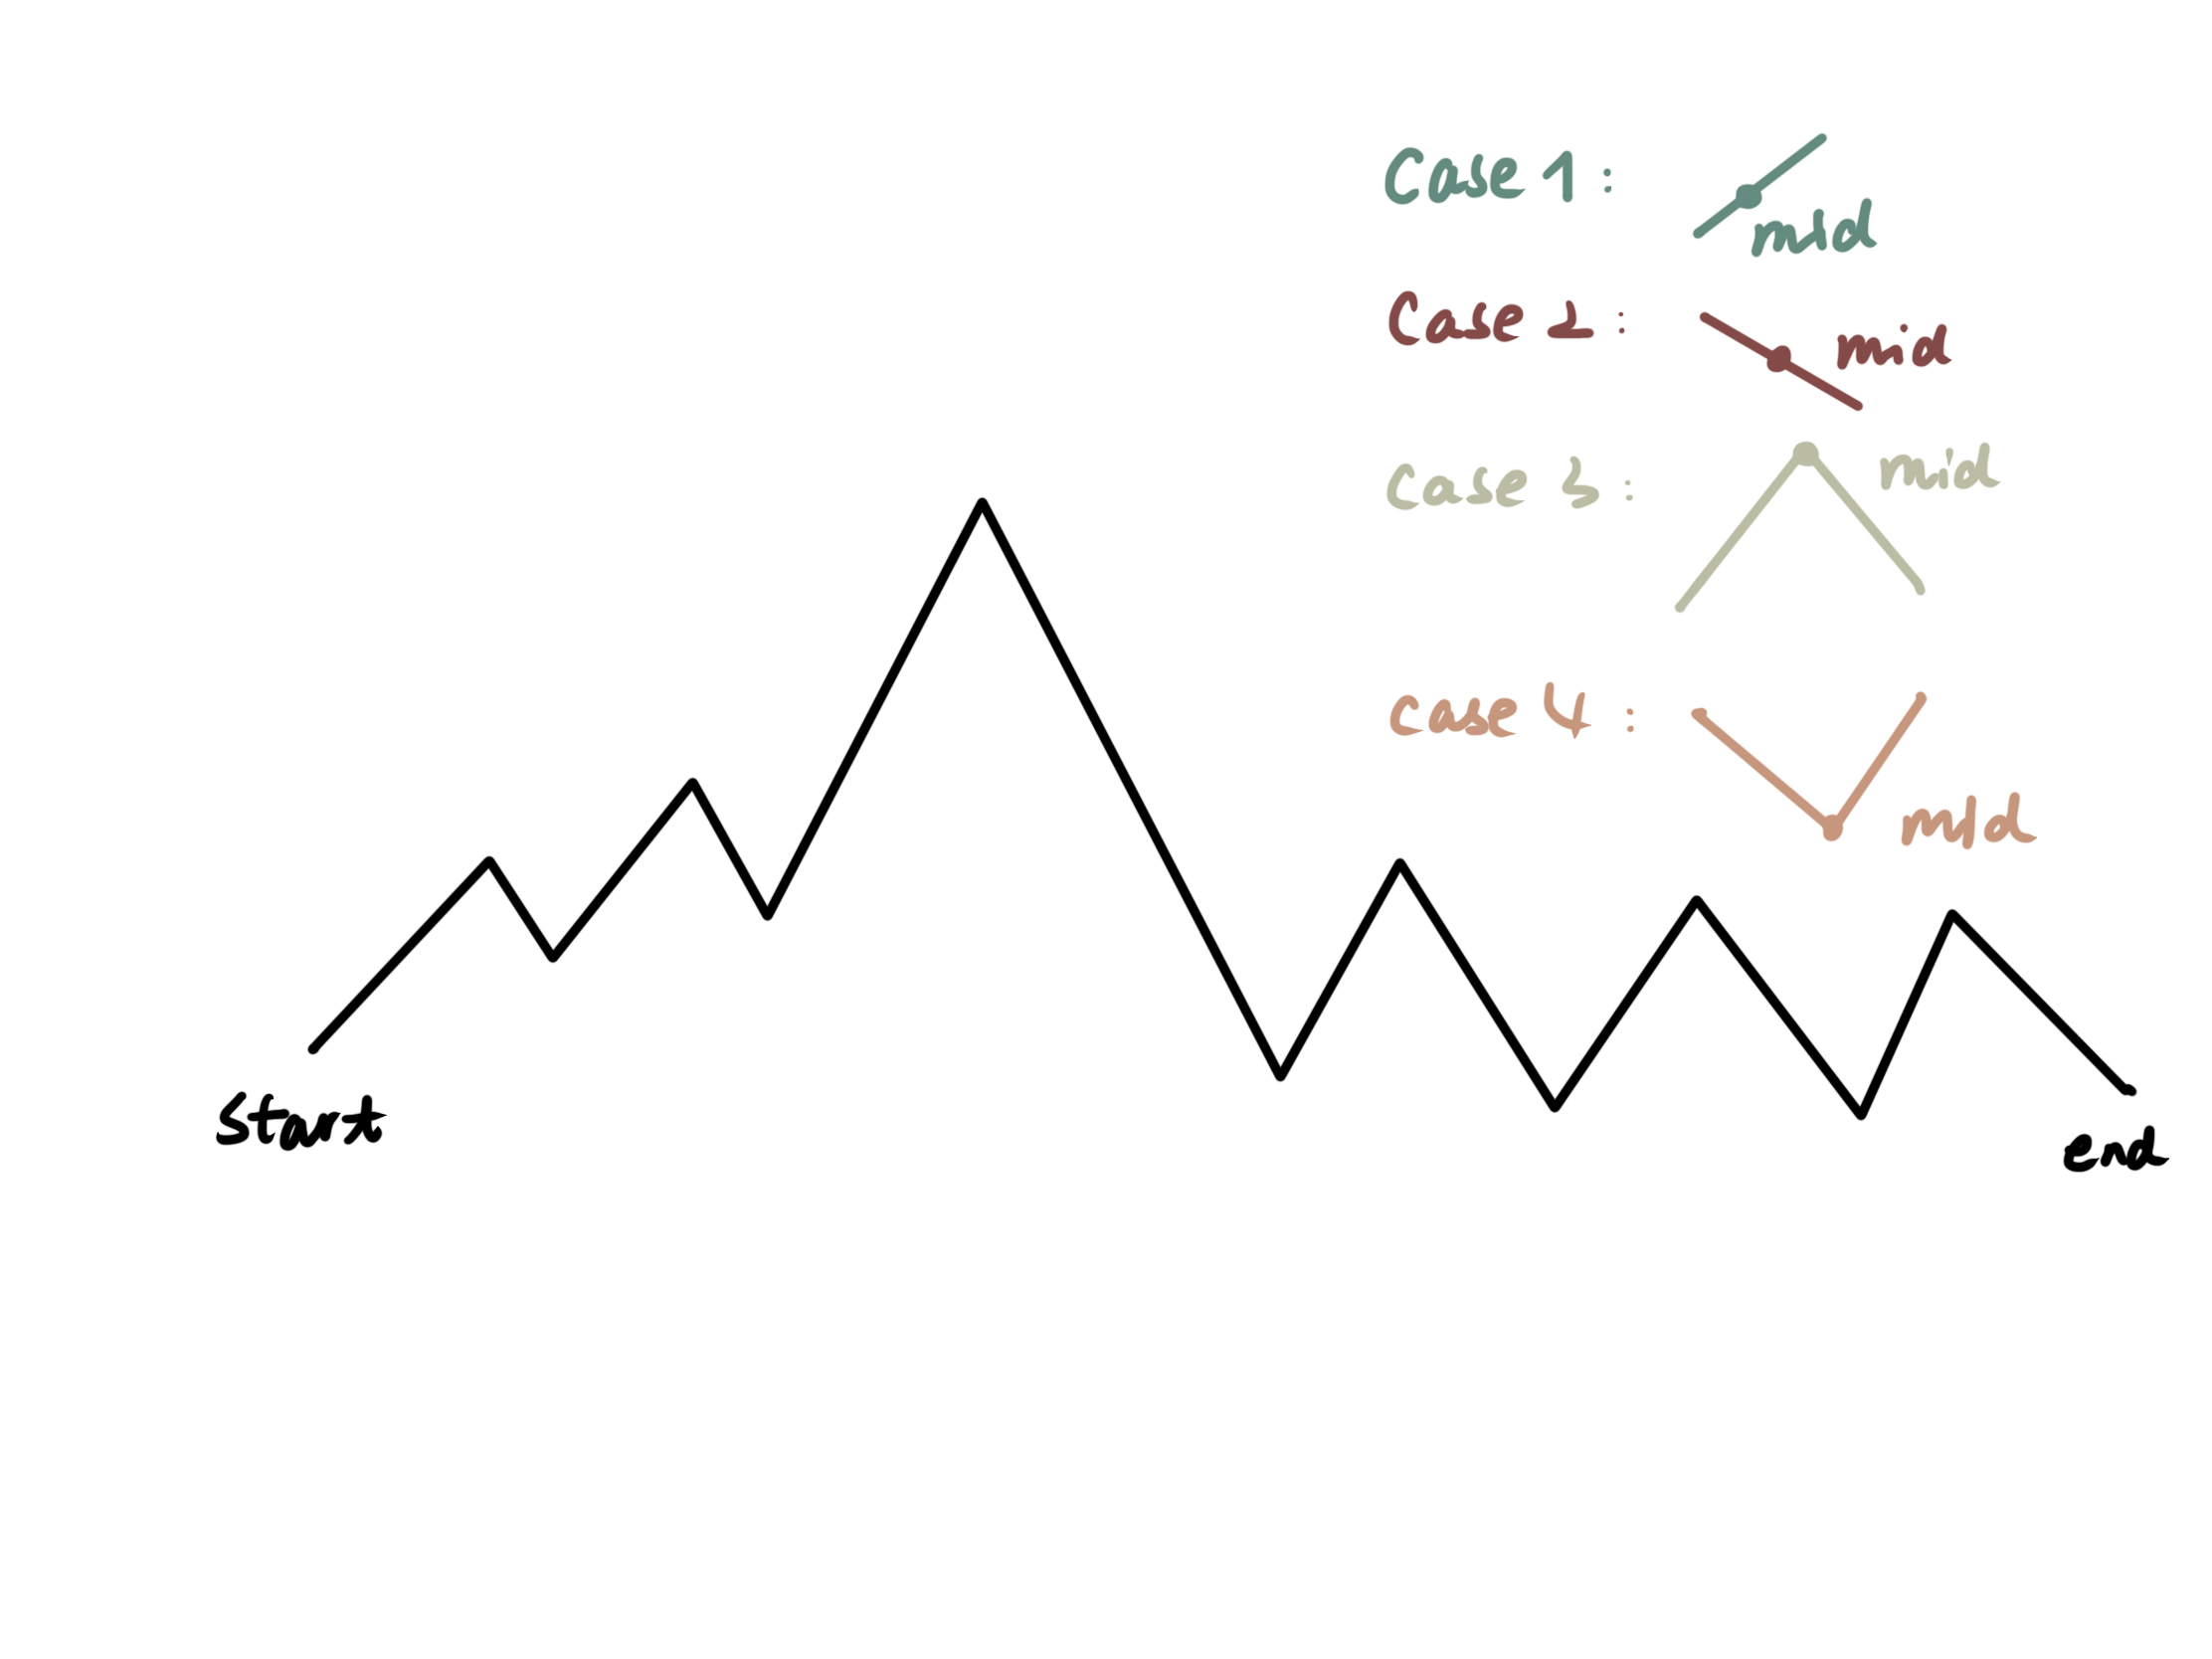 Case 1 :
mid
Case 2 :
mid
Case 3 :
mid
case 4 :
mid
start
end